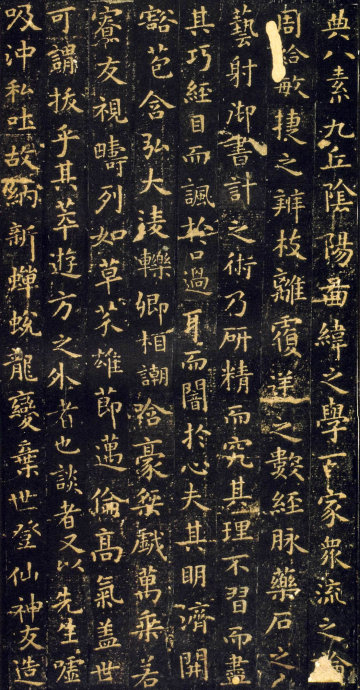 典八素九丘陰陽圖緯之學百家眾流之論
周給敏捷之辨枝離覆逆之數經脉藥石之
藝射御書計之術乃研精而究其理不習而盡
其巧經目而諷於口過耳而闇於心夫其明濟開
豁苞含弘大淩轢卿相謿哈豪桀戲萬乘若
寮友視疇列如草芥雄節邁倫高氣盖世
可謂拔乎其萃遊方之外者也談者又以先生噓
吸沖和吐故納新蟬蛻龍變棄世登仙神友造